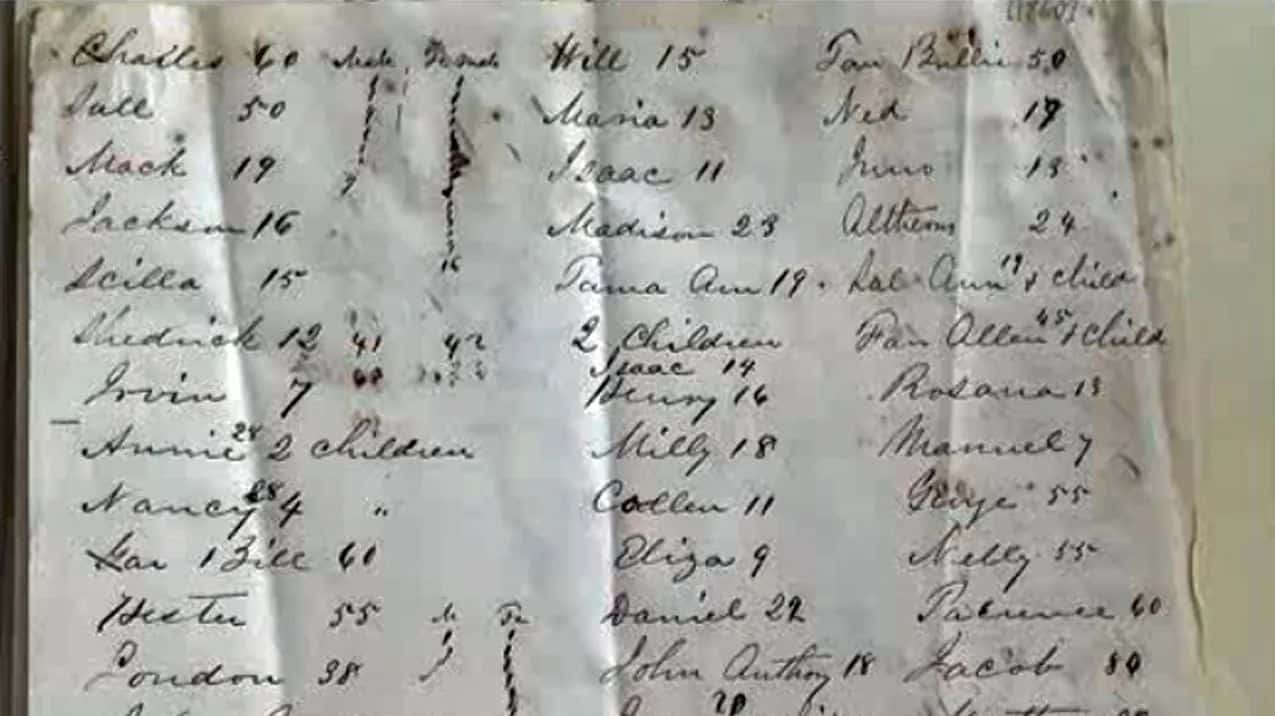 (1860)
Charles 60 Male Female
Sall 50
Mack 19
Jackson 16
Scilla 15
16
Shedrick 12 41 42
Irvin 7
Annie 24 2 children
Nancy 28 4 "
Bill 60
Hester 55 M Fe
London 38
Will 15
Maria 13
Isaac 11
Madison 23
Tama Ann 19
2 Children
Isaac 14
Henry 16
Milly 18
Collen 11
Eliza 9
Daniel 22
John Anthony 18
Fan 50
Ned 19
Juno 18
24
Sal Ann 19 & child
Fan Allen 45 & Child
Rosana 13
Manuel 7
George 55
Nelly 55
Patience 60
Jacob 80